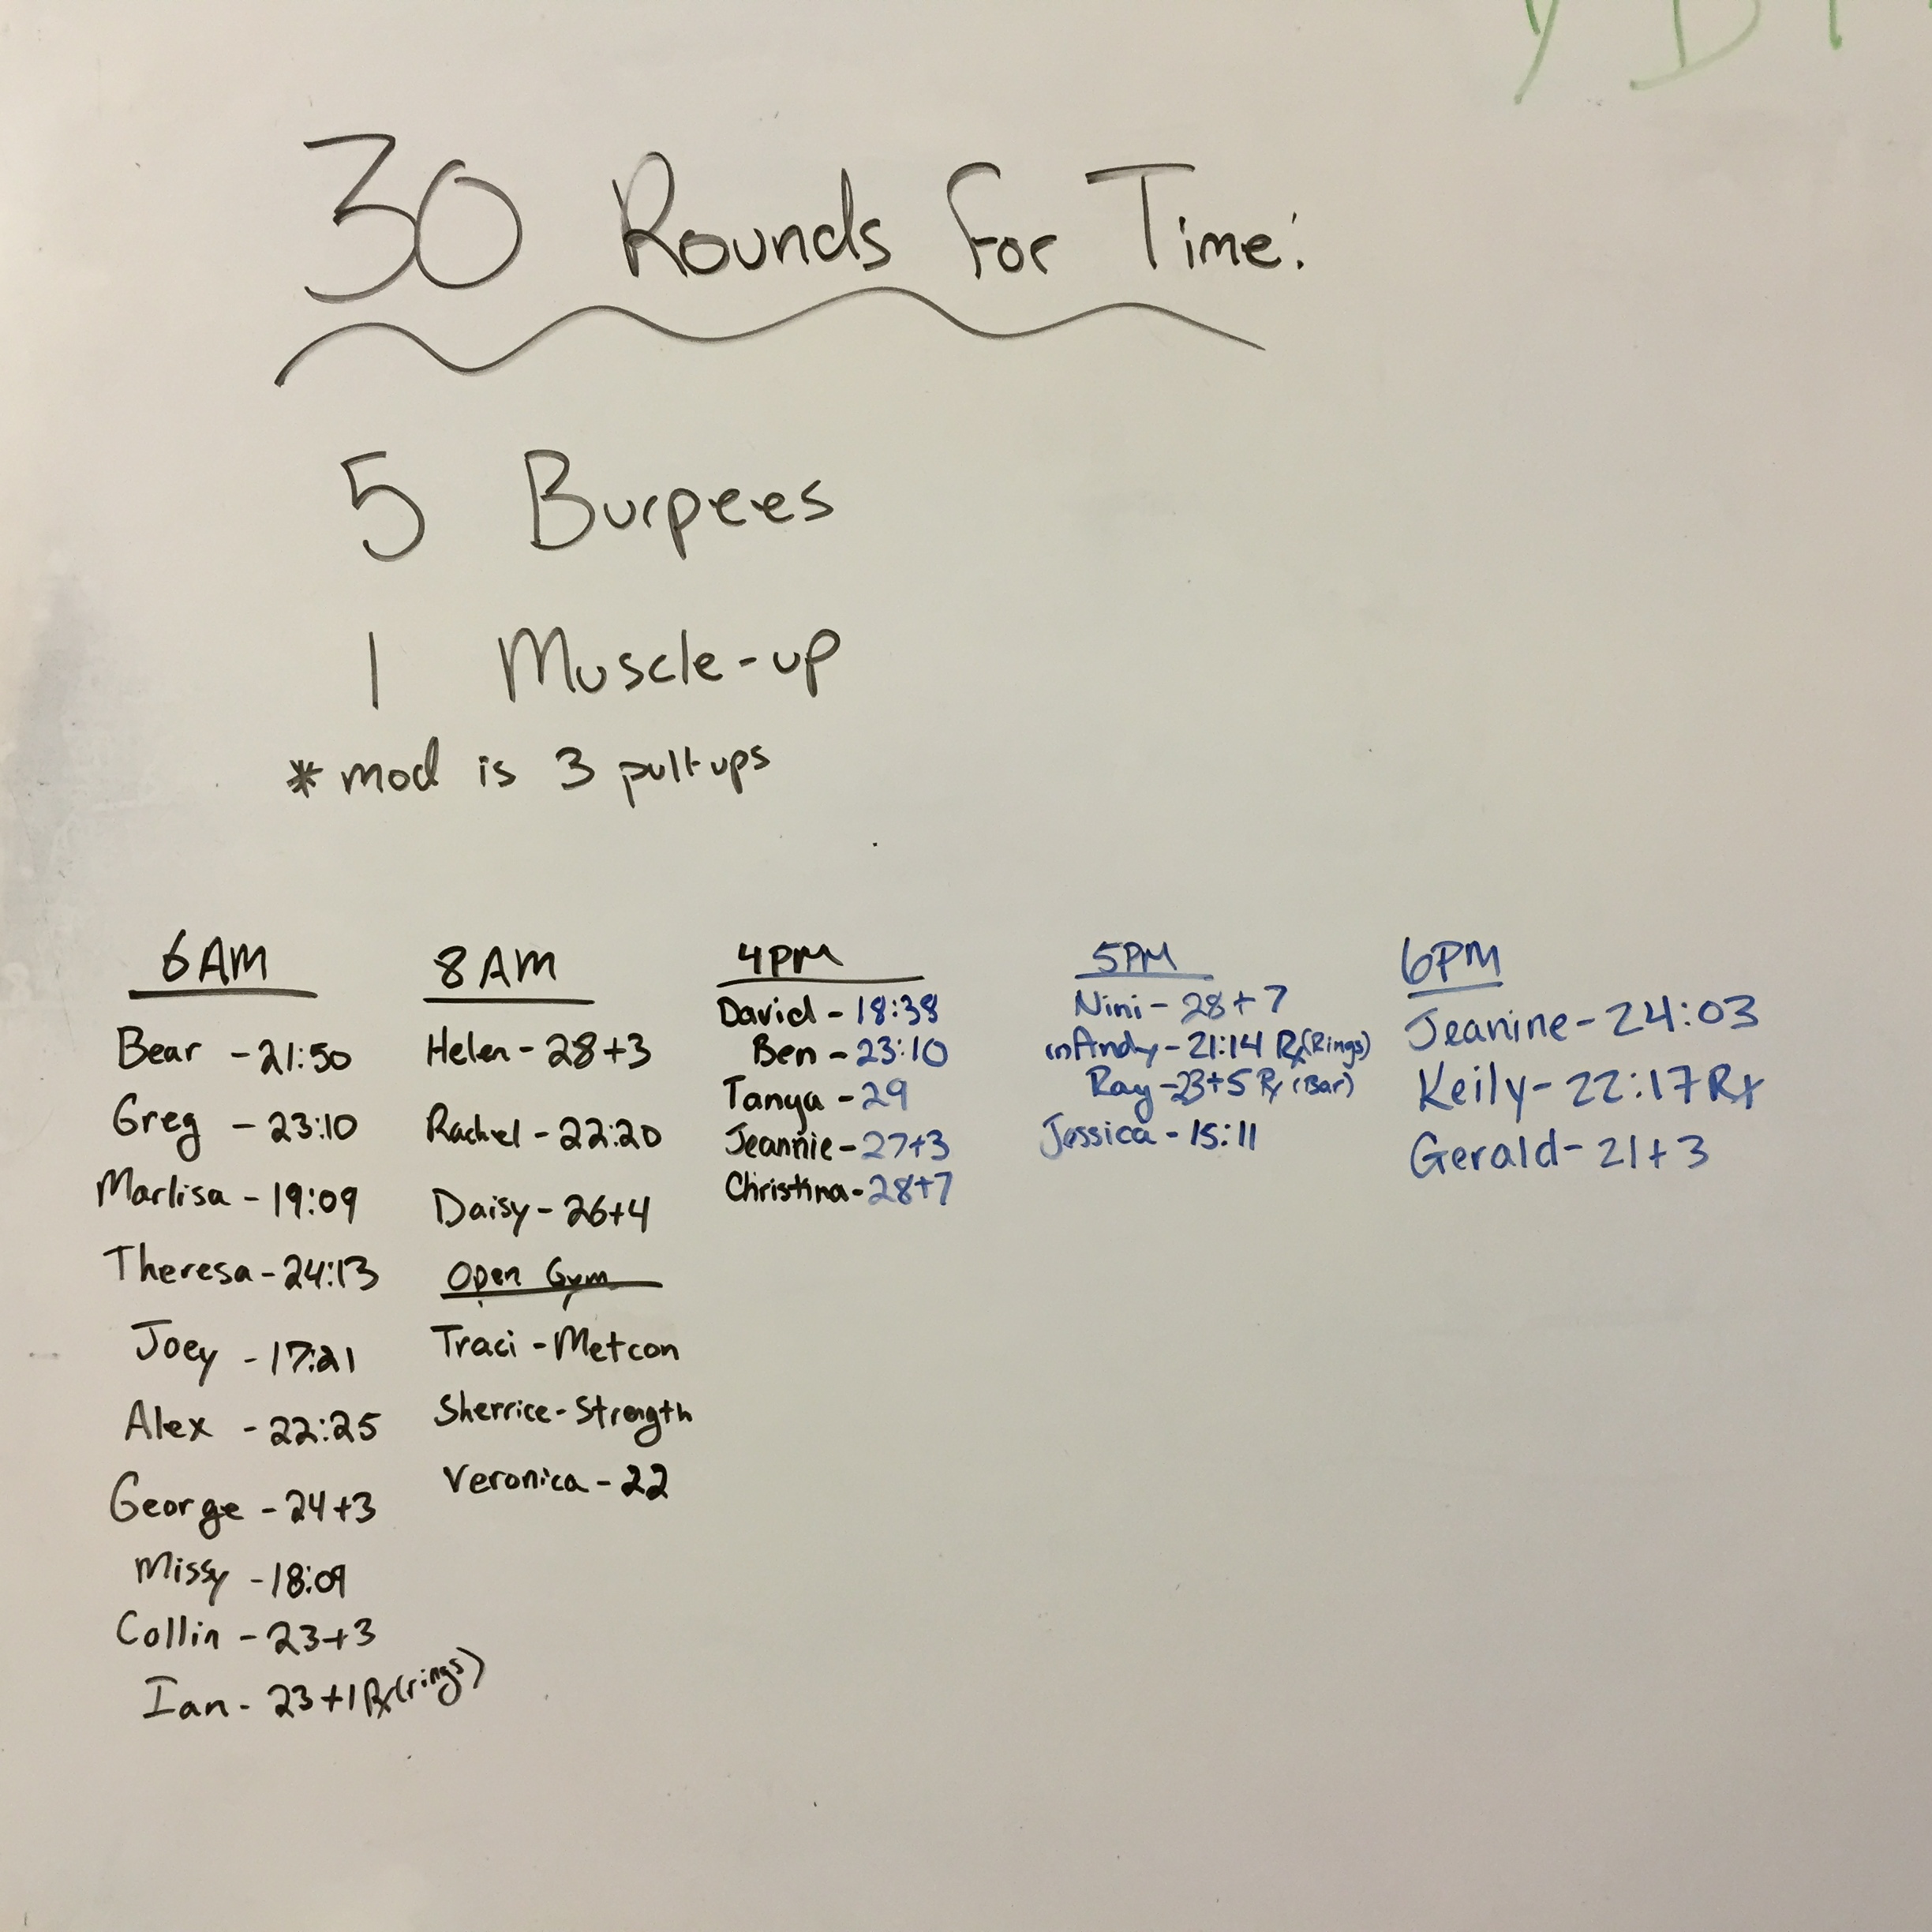 30 Rounds For Time:
5 Burpees
1 Muscle-up
* mod is 3 pull-ups
6AM
Bear - 21:50
Greg - 23:10
Marlisa - 19:09
Theresa - 24:13
Joey - 17:21
Alex - 22:25
George - 24+3
Missy - 18:09
Collin - 23+3
Ian - 23+1 Rx (rings)
8AM
Helen - 28+3
Rachel - 22:20
Daisy - 26+4
Open Gym
Traci - Metcon
Sherrice - Strength
Veronica - 22
4PM
David - 18:38
Ben - 23:10
Tanya - 29
Jeannie - 27+3
Christina - 28+7
5PM
Nini - 28+7
Andy - 21:14 Rx (Rings)
Ray - 23+5 Rx (Bar)
Jessica - 15:11
6PM
Jeanine - 24:03
Keily - 22:17 Rx
Gerald - 21+3